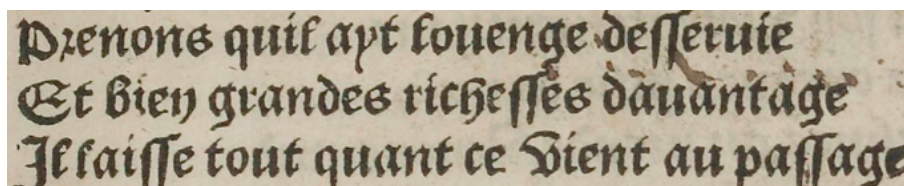 Prenons quil ayt louenge desseruie
Et bien grandes richesses dauantage
Il laisse tout quant ce vient au passage